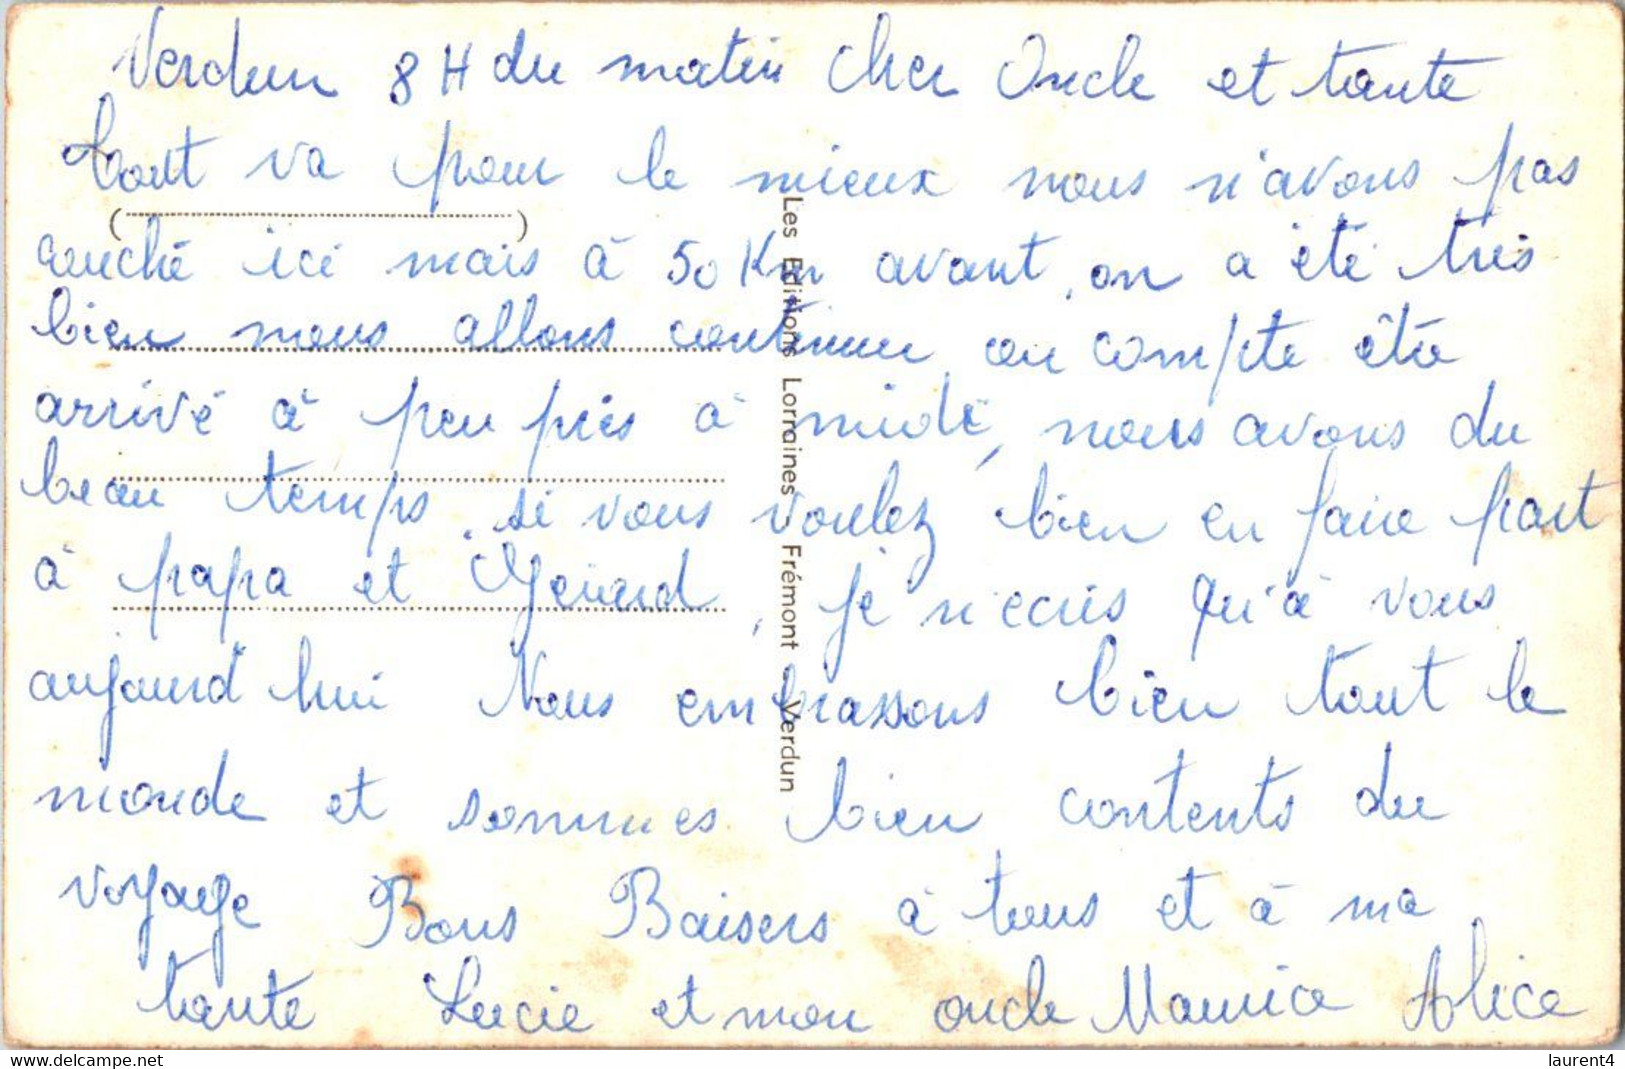 Verdun 8 H du matin Cher Oncle et tante
tout va pour le mieux nous n'avons pas
couché ici mais à 50 Km avant, on a été très
bien nous allons continuer on compte être
arrivé à peu près à midi, nous avons du
beau temps. si vous voulez bien en faire part
à papa et Gérard, je n'écris qu'à vous
aujourd'hui Nous embrassons bien tout le
monde et sommes bien contents du
voyage Bons Baisers à tous et à ma
tante Lucie et mon oncle Maurice Alice
Les Editions Lorraines - Frémont - Verdun
laurent4